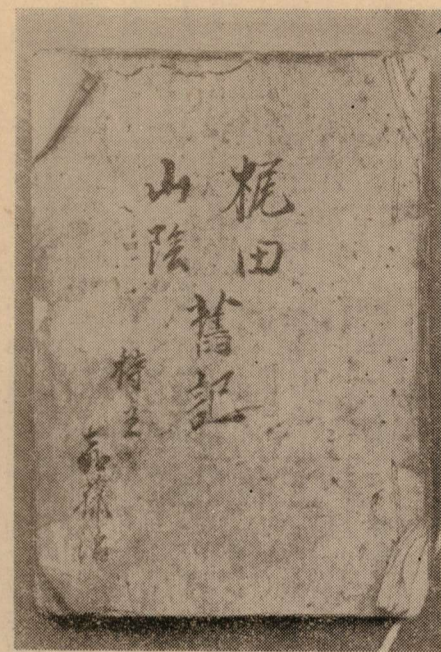 梶田
山陰
舊記
持主